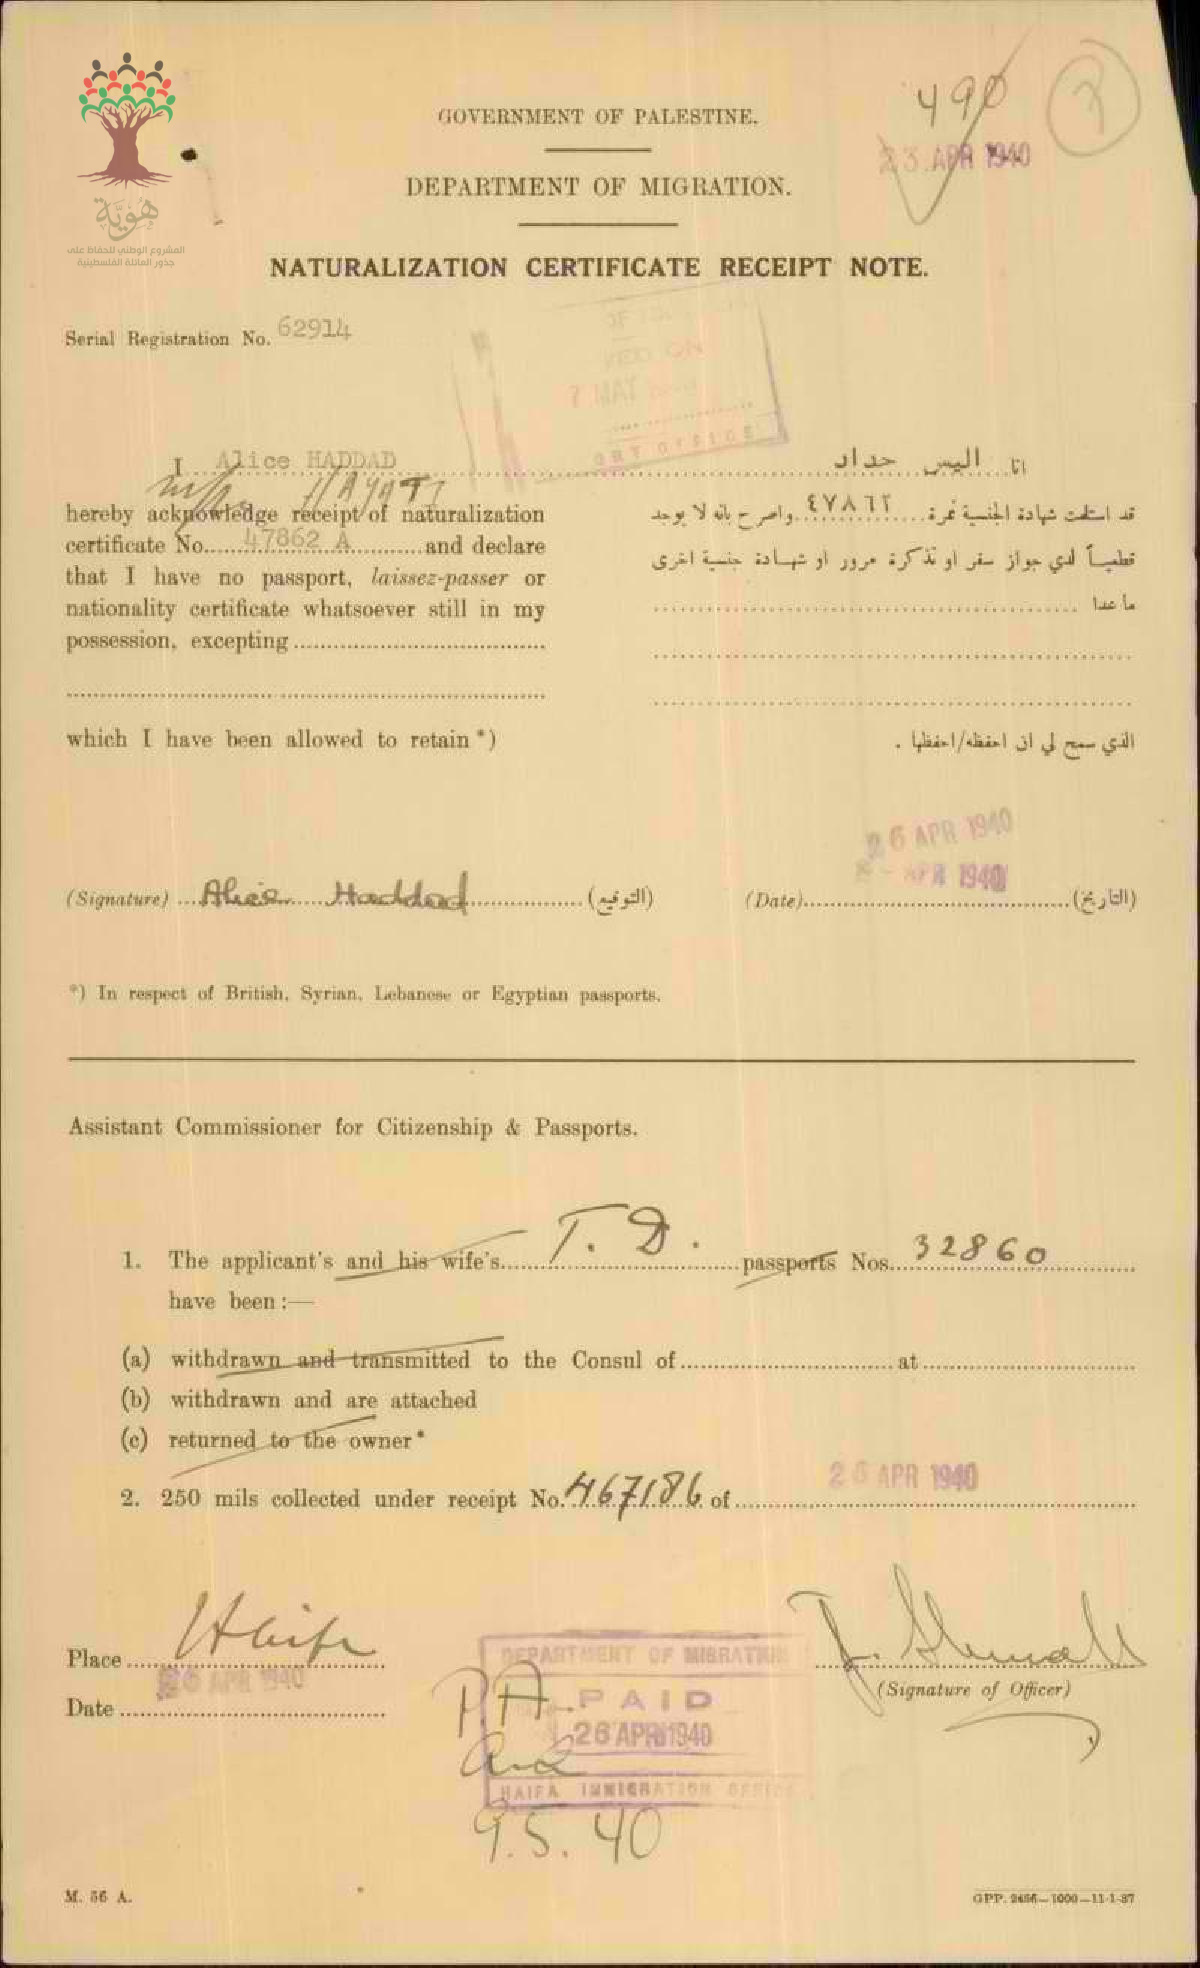 490
23 APR 1940
GOVERNMENT OF PALESTINE.
DEPARTMENT OF MIGRATION.
هوية
المشروع الوطني للحفاظ على
جذور العائلة الفلسطينية
NATURALIZATION CERTIFICATE RECEIPT NOTE.
Serial Registration No. 62914
7 MAY
I Alice HADDAD
HAYAT
hereby acknowledge receipt of naturalization
certificate No. 47862 A and declare
that I have no passport, laissez-passer or
nationality certificate whatsoever still in my
possession, excepting
which I have been allowed to retain *)
انا اليس حداد
قد استلمت شهادة الجنسية نمرة ٤٧٨٦٢ واصرح بانه لا يوجد
قطعياً لدي جواز سفر او تذكرة مرور او شهادة جنسية اخرى
ما عدا
الذي سمح لي ان احفظه/احفظها .
26 APR 1940
APR 1940
(Signature) Alice Haddad (التوقيع) (Date) (التاريخ)
*) In respect of British, Syrian, Lebanese or Egyptian passports.
Assistant Commissioner for Citizenship & Passports.
1. The applicant's and his wife's T. D. passports Nos. 32860
have been :—
(a) withdrawn and transmitted to the Consul of at
(b) withdrawn and are attached
(c) returned to the owner*
2. 250 mils collected under receipt No. 467186 of 26 APR 1940
Place Haifa
26 APR 1940
Date
(Signature of Officer)
DEPARTMENT OF MIGRATION
PAID
26 APR 1940
HAIFA IMMIGRATION OFFICE
P.A.
9.5.40
M. 56 A.
GPP. 2456—1000—11-1-37